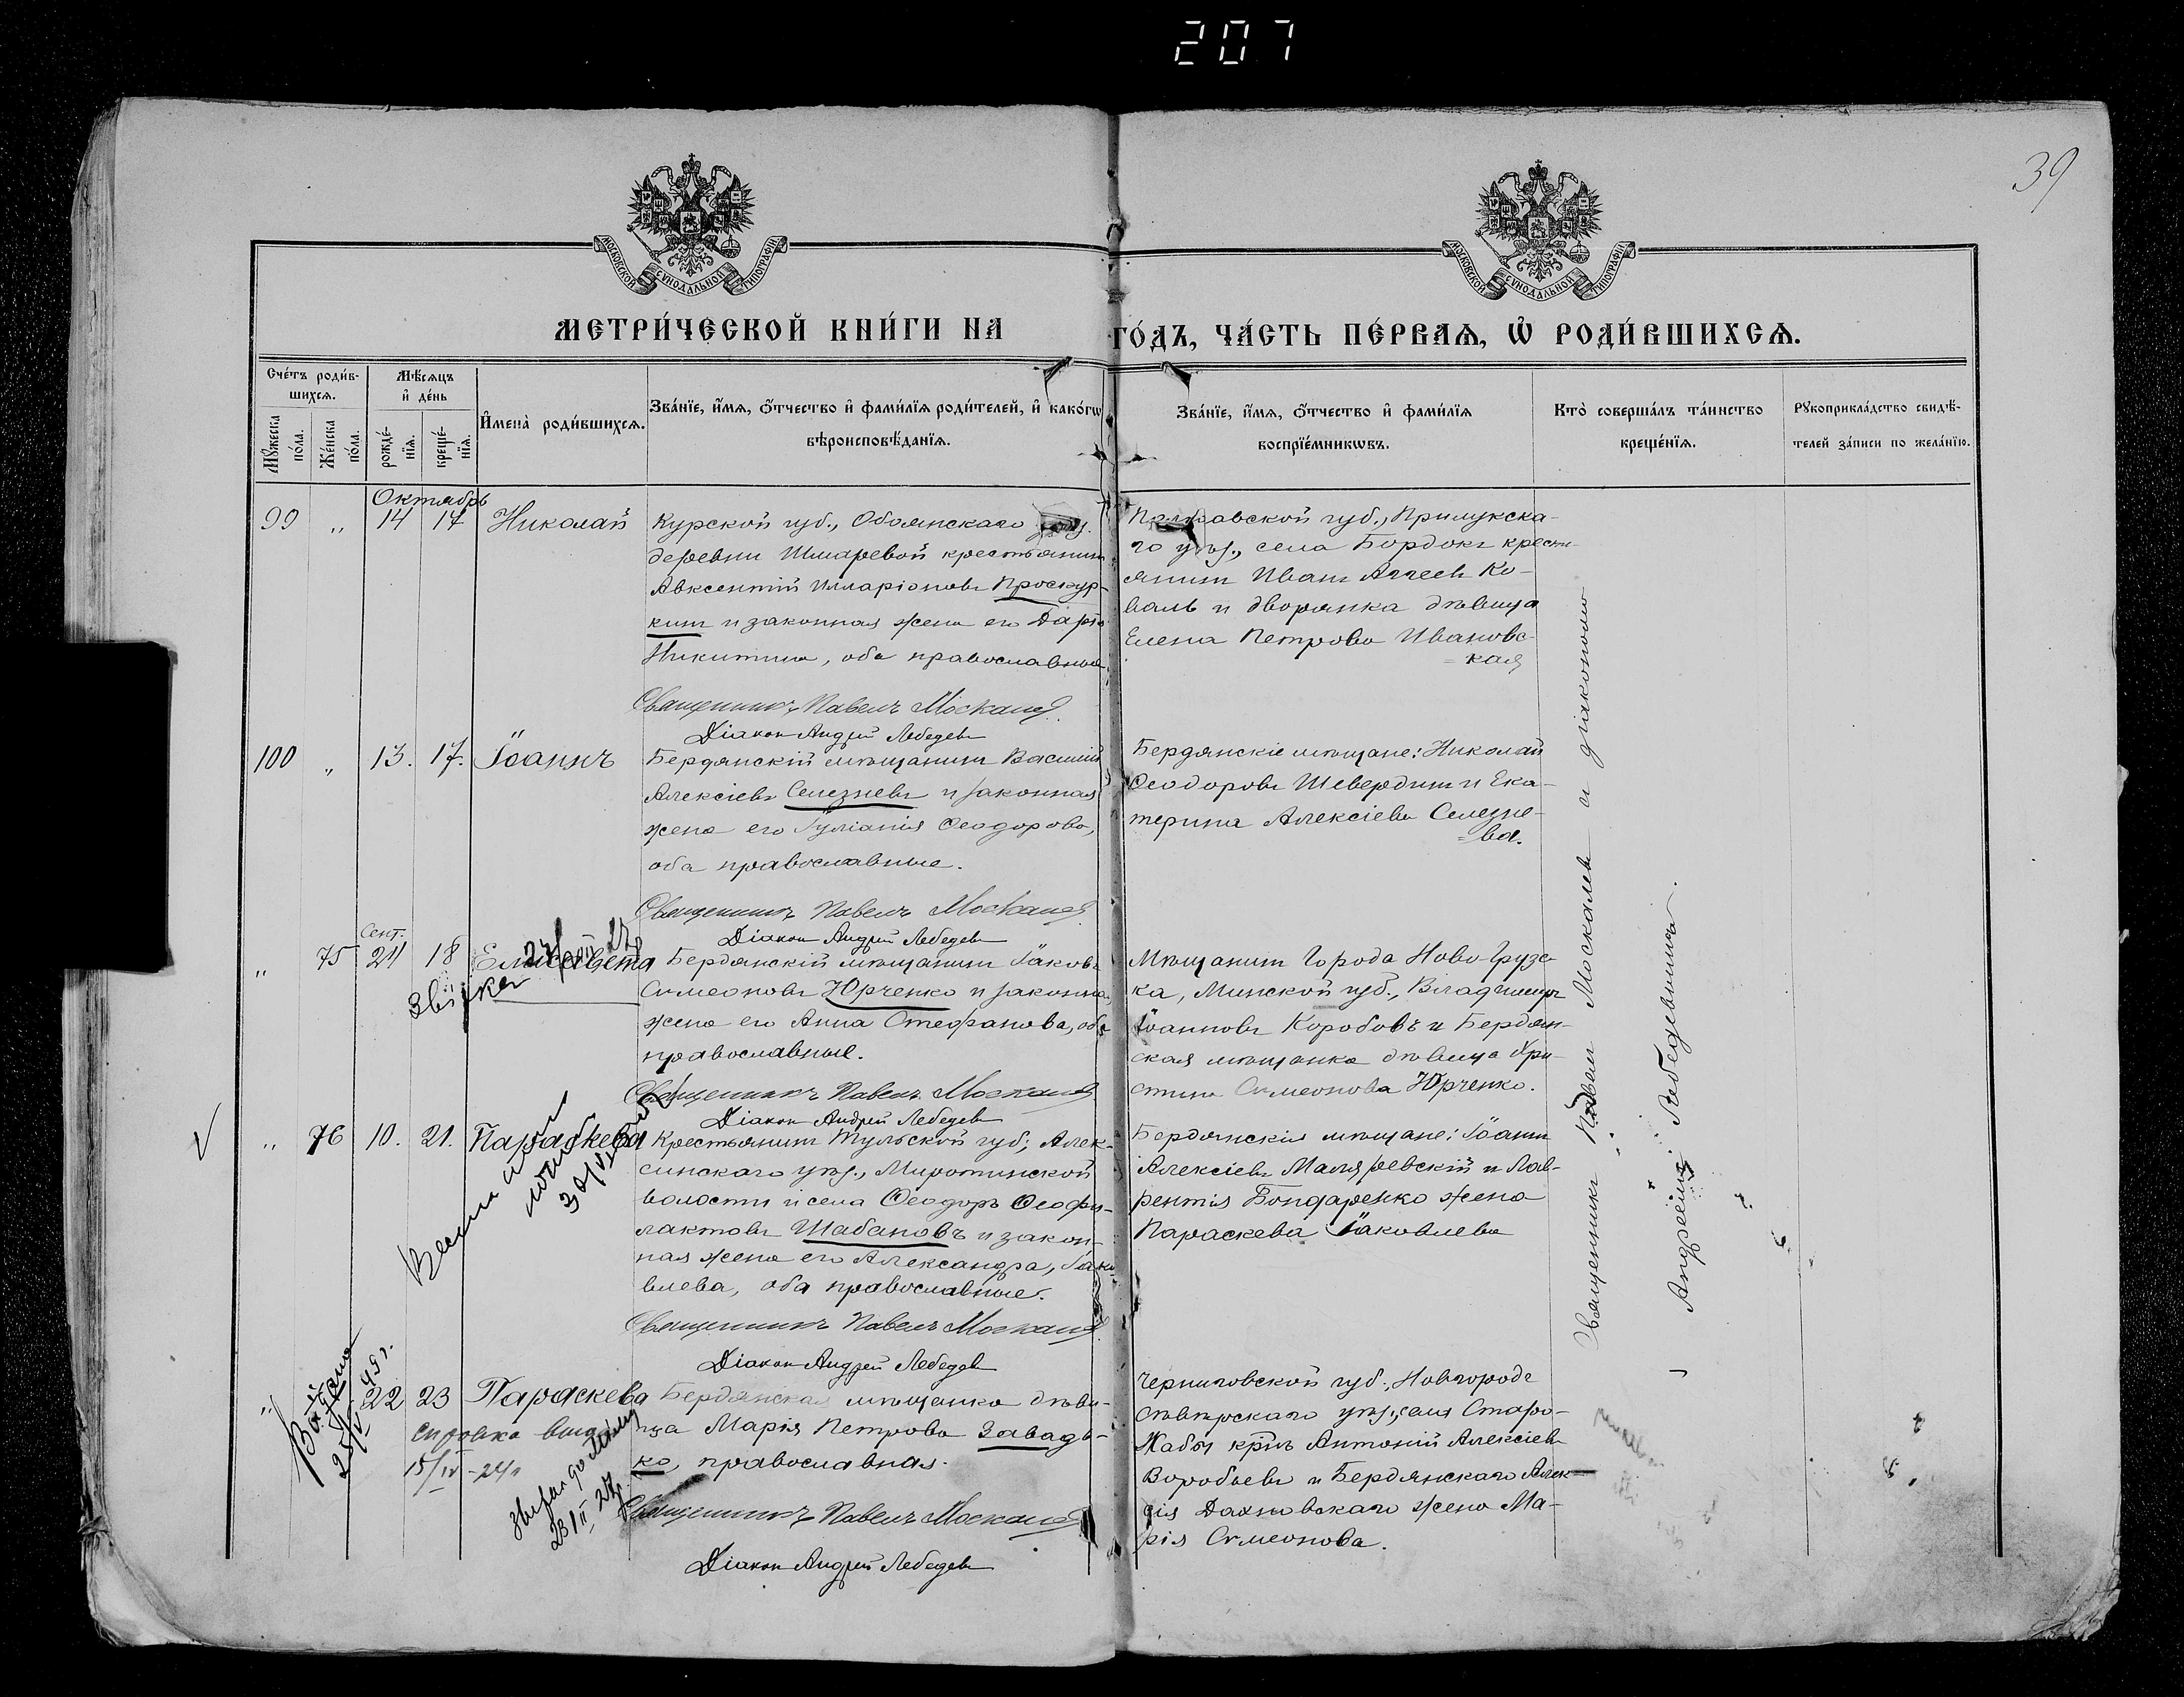 207
39
МОСКОВСКОЙ СѴНОДАЛЬНОЙ ТИПОГРАФІИ
МОСКОВСКОЙ СѴНОДАЛЬНОЙ ТИПОГРАФІИ
МЕТРИ́ЧЕСКОЙ КНИ́ГИ НА ГО́ДЪ, ЧА́СТЬ ПЕ́РВАѦ, Ѽ РОДИ́ВШИХСѦ.
Сче́тъ роди́в-
шихсѧ.
Мѹжеска по́ла.
Же́нска по́ла.
Мѣ́сѧцъ
и҆ де́нь
рожде́-
нїѧ.
креще́-
нїѧ.
И҆мена̀ роди́вшихсѧ.
Зва́нїе, и҆́мѧ, ѻ҆́тчество и҆ фами́лїѧ роди́телей, и҆ како́гѡ
вѣроисповѣ́данїѧ.
Зва́нїе, и҆́мѧ, ѻ҆́тчество и҆ фами́лїѧ
воспрїе́мникѡвъ.
Кто̀ соверша́лъ та́инство
креще́нїѧ.
Рѹкоприкла́дство свидѣ́-
телей за́писи по жела́нїю.
Октябрь
99 " 14 17 Николай
Курской губ., Обоянскаго
деревни Шмаревой крестьянинъ
Авксентій Илларіоновъ Проскур-
кинъ и законная жена его Дарія
Никитина, оба православные.
Священникъ Павелъ Москалев
Діаконъ Андрей Лебедевъ
Полтавской губ., Прилукска-
го уѣз., села крестья-
янинъ Иванъ Ко-
валь и дворянка дѣвица
Елена Петрова Ивановс-
=кая
100 " 13. 17. Іоаннъ
Бердянскій мѣщанинъ Василій
Алексіевъ Селезневъ и законная
жена его Іуліанія Ѳеодорова,
оба православные.
Священникъ Павелъ Москалев
Діаконъ Андрей Лебедевъ
Бердянскіе мѣщане: Николай
Ѳеодоровъ Шевердинъ и Ека-
терина Алексіева Селезне-
=ва.
Сент.
" 75 24 18 Елисавета
Бердянскій мѣщанинъ Іаковъ
Симеоновъ Юрченко и законная
жена его Анна Стефанова, оба
православные.
Священникъ Павелъ Москалев
Діаконъ Андрей Лебедевъ
Мѣщанинъ города Ново-Грудс-
ка, Минской губ., Владимиръ
Іоанновъ Коробовъ и Бердян-
ская мѣщанка дѣвица Хри-
стина Симеонова Юрченко.
" 76 10. 21. Параскева
Крестьянинъ Тульской губ., Алек-
синскаго уѣз., Миротинской
волости и села Ѳеодоръ Ѳеофи-
лактовъ Шабановъ и закон-
ная жена его Александра, Іако-
влева, оба православные.
Священникъ Павелъ Москалев
Діаконъ Андрей Лебедевъ
Бердянскіе мѣщане: Іоаннъ
Алексіевъ Маляревскій и Лав-
рентія Бондаренко жена
Параскева Іаковлева
" 22 23 Параскева
Бердянская мѣщанка дѣви-
ца Марія Петрова Завадь-
ко, православная.
Священникъ Павелъ Москалев
Діаконъ Андрей Лебедевъ
Черниговской губ., Новгородъ
Сѣверскаго уѣз., села Старо-
Антоній Алексіевъ
Воробьевъ и Бердянскаго Алек-
сія Дахновскаго жена Ма-
рія Симеонова.
справка
15/IV-24г
Священникъ Павелъ Москалевъ и діакономъ
Андреемъ Лебедевымъ.